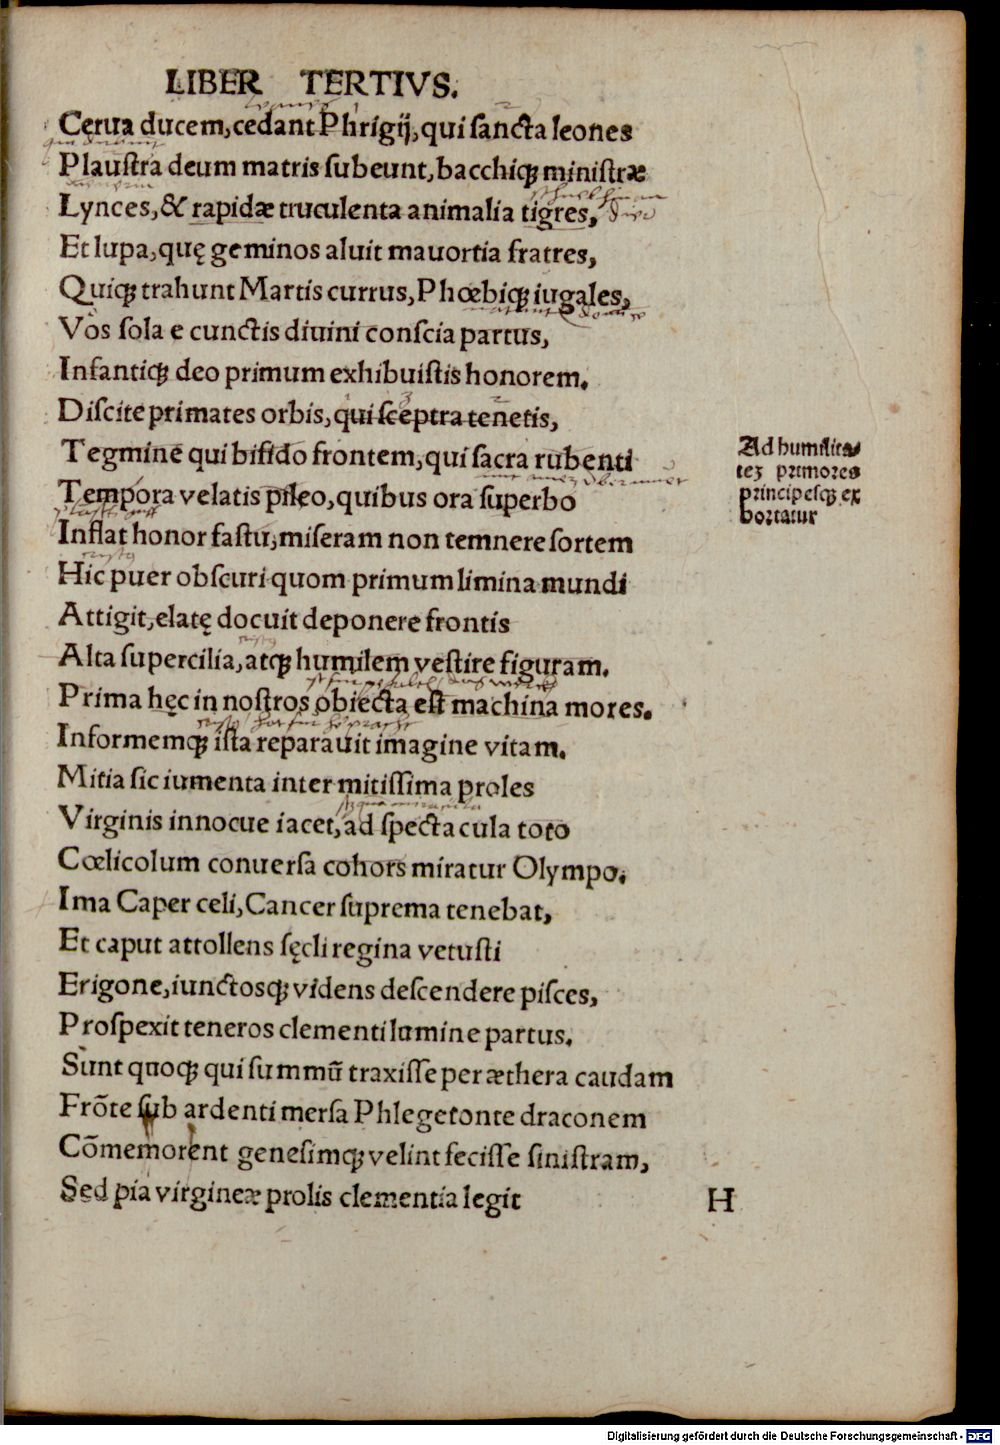 LIBER TERTIVS.
Cerua ducem, cedant Phrigij, qui sancta leones
Plaustra deum matris subeunt, bacchiqꝫ ministræ
Lynces, & rapidæ truculenta animalia tigres,
Et lupa, quę geminos aluit mauortia fratres,
Quiqꝫ trahunt Martis currus, Phœbiqꝫ iugales,
Vos sola e cunctis diuini conscia partus,
Infantiqꝫ deo primum exhibuistis honorem.
Discite primates orbis, qui sceptra tenetis,
Tegmine qui bifido frontem, qui sacra rubenti
Ad humilita
teꝫ primores
principesqꝫ ex
hortatur
Tempora velatis pileo, quibus ora superbo
Inflat honor fastu, miseram non temnere sortem
Hic puer obscuri quom primum limina mundi
Attigit, elatę docuit deponere frontis
Alta supercilia, atqꝫ humilem vestire figuram.
Prima hęc in nostros obiecta est machina mores.
Informemqꝫ ista reparauit imagine vitam.
Mitia sic iumenta inter mitissima proles
Virginis innocue iacet, ad spectacula toto
Cœlicolum conuersa cohors miratur Olympo.
Ima Caper celi, Cancer suprema tenebat,
Et caput attollens sęcli regina vetusti
Erigone, iunctosqꝫ videns descendere pisces,
Prospexit teneros clementi lumine partus.
Sunt quoqꝫ qui summū traxisse per æthera caudam
Frōte sub ardenti mersa Phlegetonte draconem
Cōmemorent genesimqꝫ velint fecisse sinistram,
Sed pia virgineæ prolis clementia legit
H
Digitalisierung gefördert durch die Deutsche Forschungsgemeinschaft - DFG